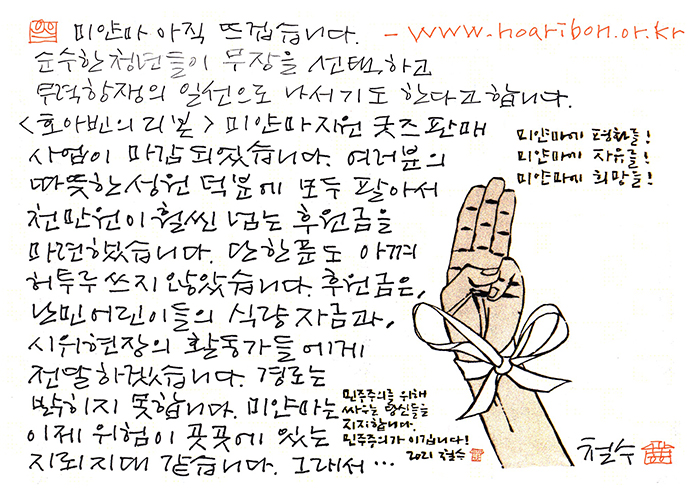 미얀마 아직 뜨겁습니다. - www.hoaribon.or.kr
순수한 청년들이 무장을 선택하고
무력항쟁의 일선으로 나서기도 한다고 합니다.
<호아빈의 리본> 미얀마 지원 굿즈 판매
사업이 마감 되었습니다. 여러분의
따뜻한 성원 덕분에 모두 팔아서
천만원이 훨씬 넘는 후원금을
마련했습니다. 단 한푼도 아껴
허투루 쓰지 않았습니다. 후원금은,
난민 어린이들의 식량 자금과,
시위현장의 활동가들에게
전달하겠습니다. 경로는
밝히지 못합니다. 미얀마는
이제 위험이 곳곳에 있는
지뢰지대 같습니다. 그래서 …
미얀마에 평화를!
미얀마에 자유를!
미얀마에 희망을!
민주주의를 위해
싸우는 당신들을
지지합니다.
민주주의가 이깁니다!
2021 철수
철수